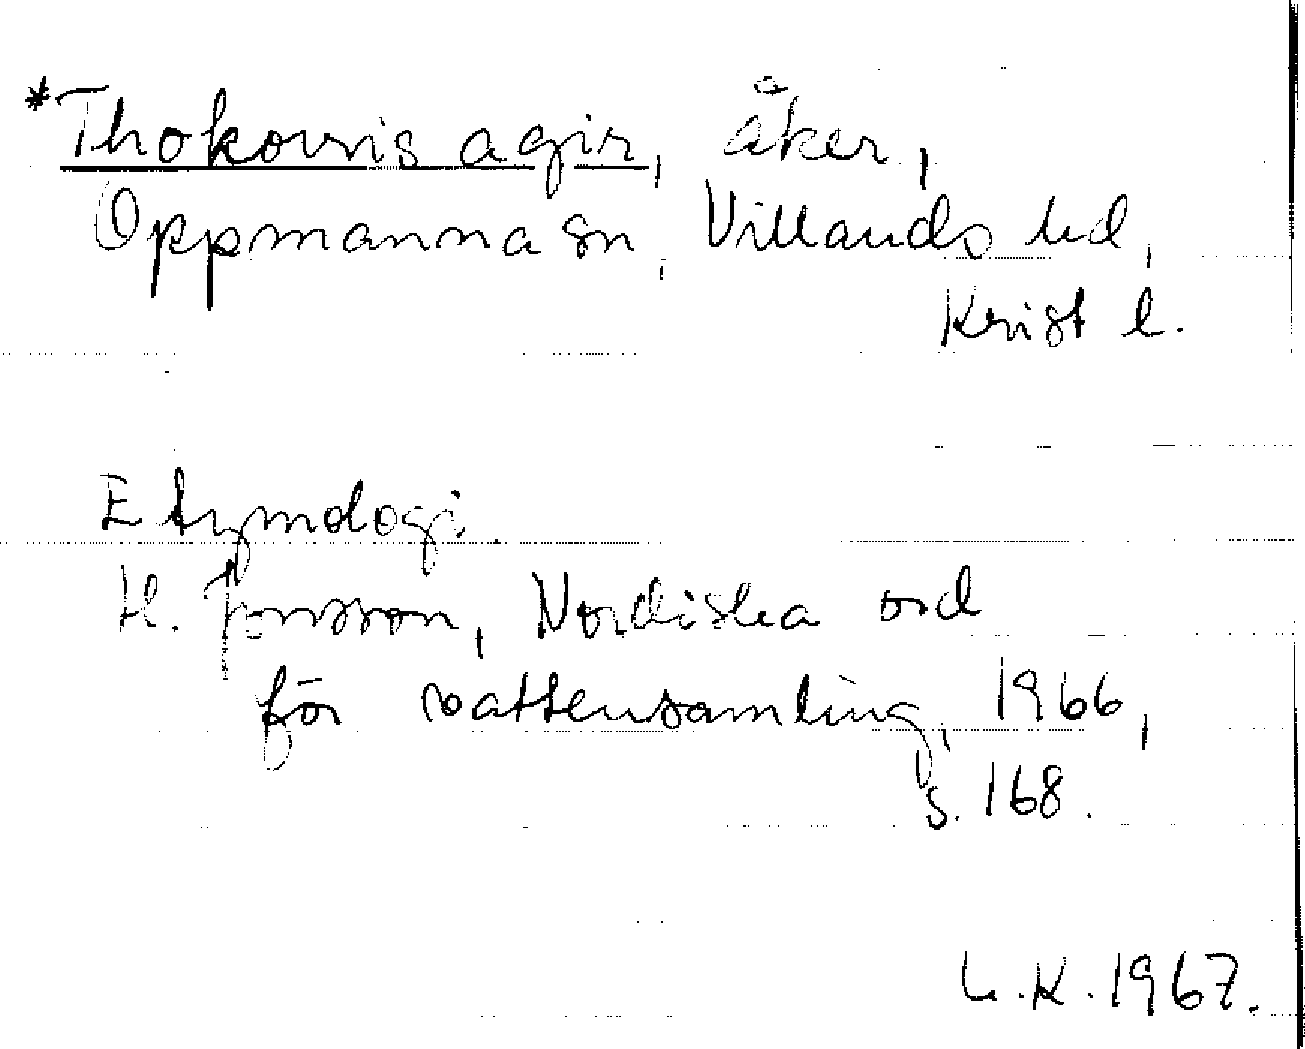 *Thokouris agir, åker,
Oppmanna sn, Villands hd,
Krist l.
Etymologi.
H. Jonsson, Nordiska ord
för vattensamling, 1966,
s. 168.
L.K. 1967.